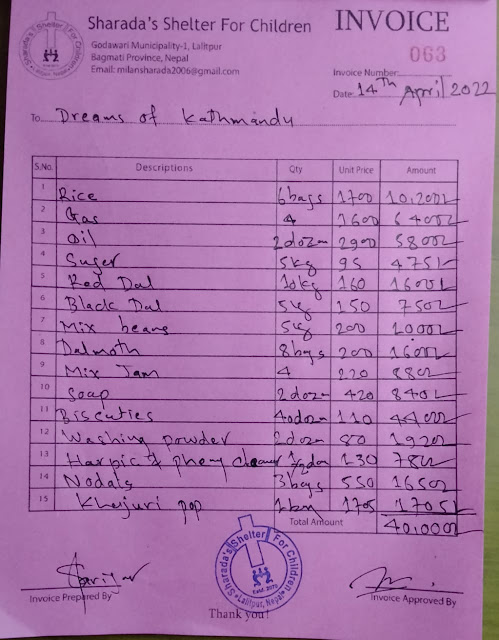 Sharada's Shelter For Children
INVOICE
Godawari Municipality-1, Lalitpur
Bagmati Province, Nepal
Email: milansharada2006@gmail.com
063
Invoice Number:
Date: 14th April 2022
To. Dreams of Kathmandu
S.No. Descriptions Qty Unit Price Amount
1 Rice 6bags 1700 10,200/-
2 Gas 4 1600 6400/-
3 Oil 2dozen 2900 5800/-
4 Suger 5kg 95 475/-
5 Red Dal 10kg 160 1600/-
6 Black Dal 5kg 150 750/-
7 Mix beans 5kg 200 1000/-
8 Dalmoth 8bgs 200 1600/-
9 Mix Jam 4 220 880/-
10 Soap 2dozen 420 840/-
11 Biscuties 40dozen 110 4400/-
12 Washing powder 2dozen 80 1920/-
13 Harpic & cleaner 1/2 130 780/-
14 Nodals 3bags 550 1650/-
15 Khejuri pop 1 1705 1705/-
Total Amount 40,000/-
Sharada's Shelter For Children
Estd. 2070
Lalitpur, Nepal
Invoice Prepared By
Invoice Approved By
Thank you!